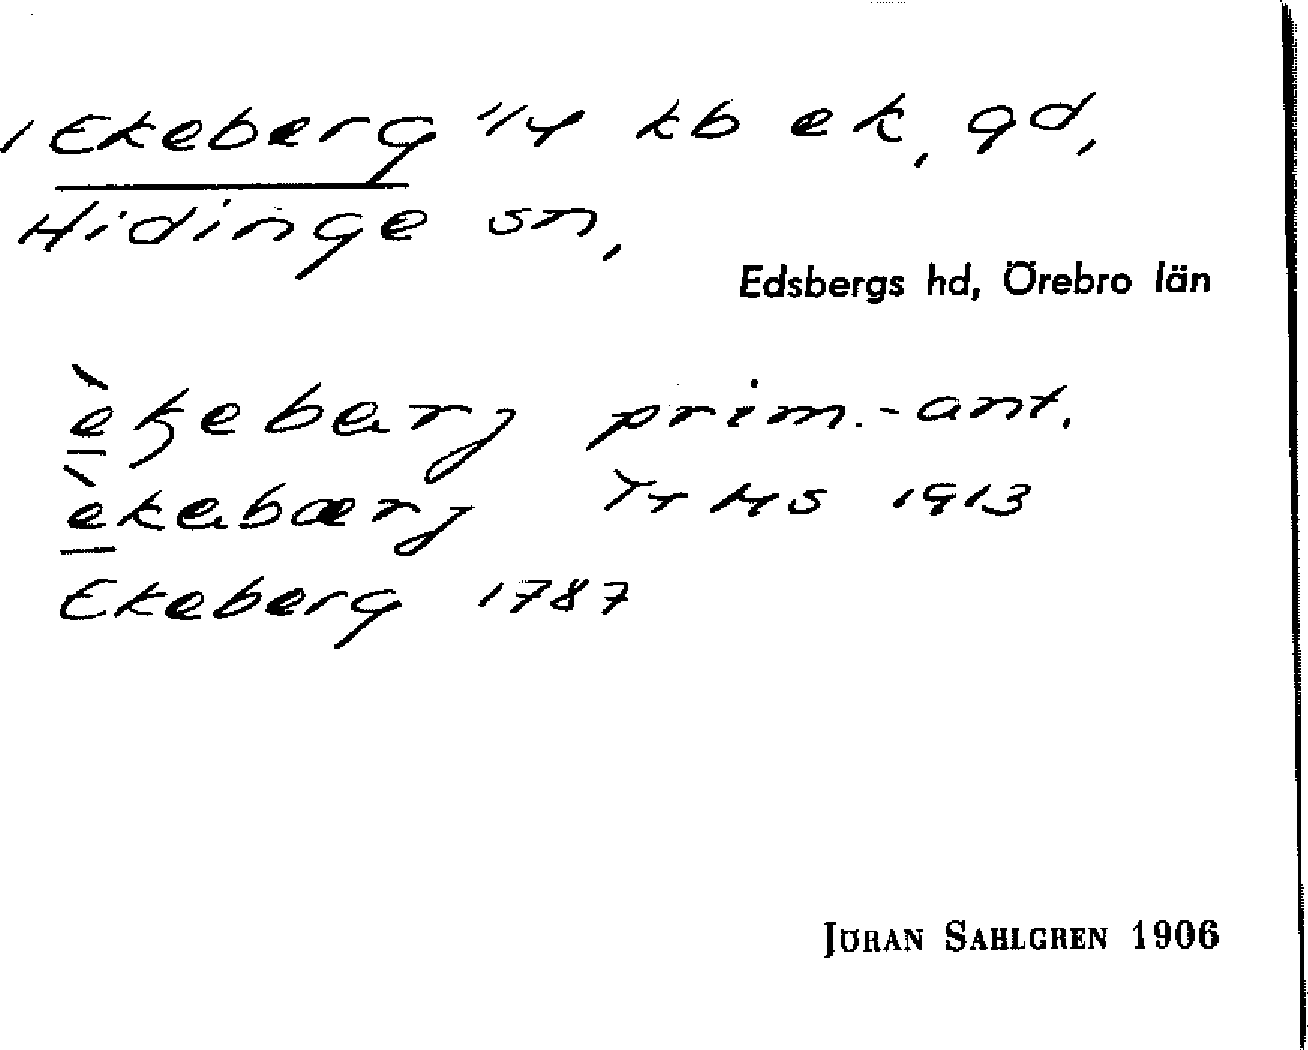 Ekeberg 1/4 kb ek, gd,
Hidinge sn,
Edsbergs hd, Örebro län
èkeberj prim.-ant.
èkebærj Yr HS 1913
Ekeberg 1787
JÖRAN SAHLGREN 1906